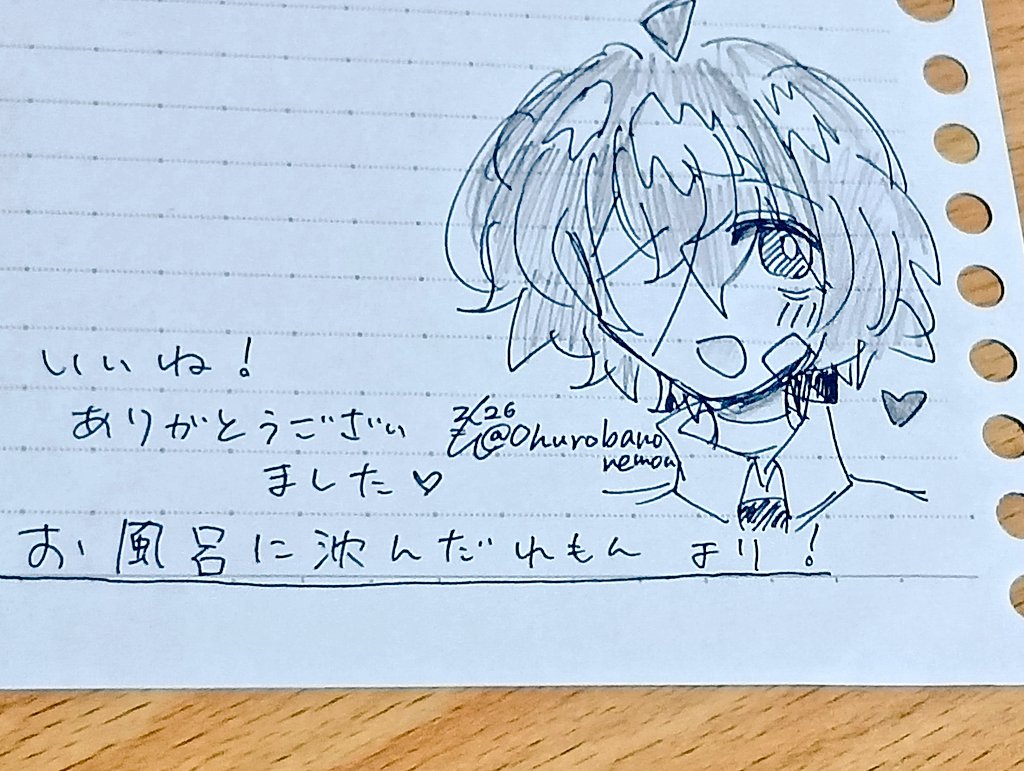 いいね!
ありがとうござい
ました♡
3/26
@Ohurobano
remon
お風呂に沈んだれもん より!